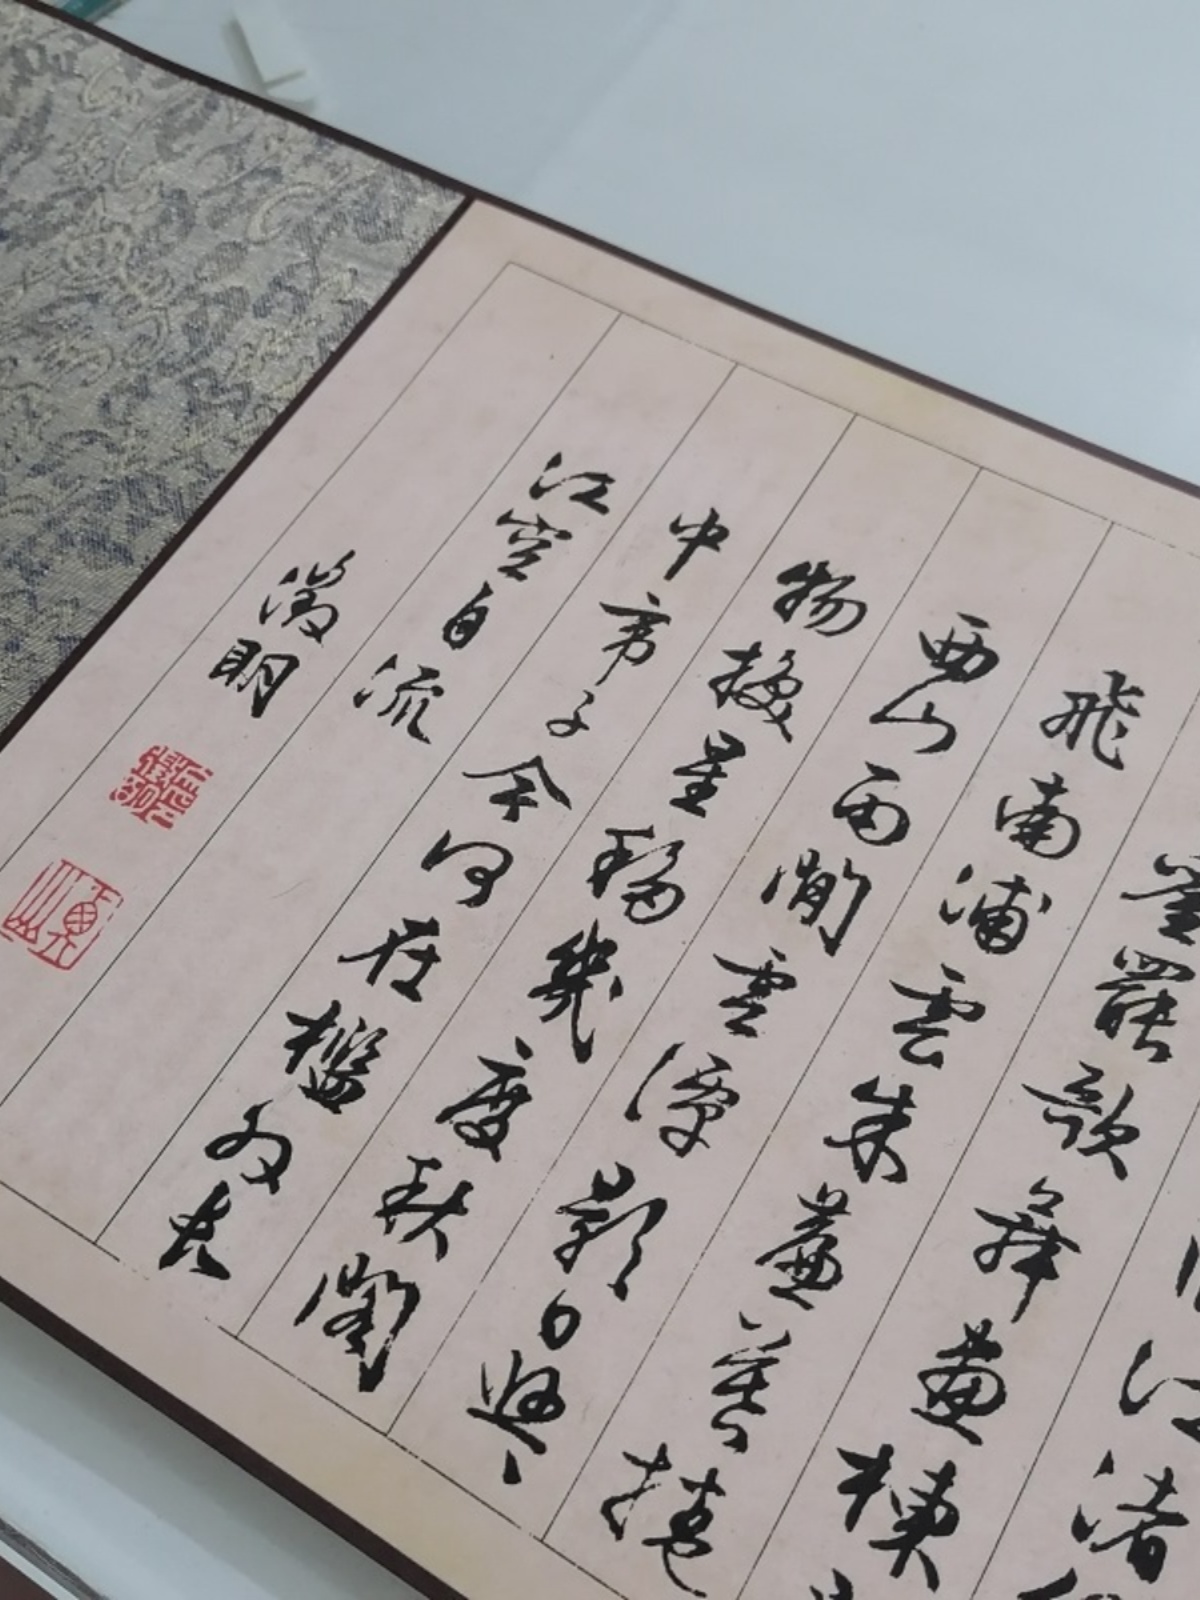 江渚
鸞罷歌舞畫棟
飛南浦雲朱簾暮捲
西山雨閒雲潭影日悠〻
物換星移幾度秋閣
中帝子今何在檻外長
江空自流
徵明
衡山